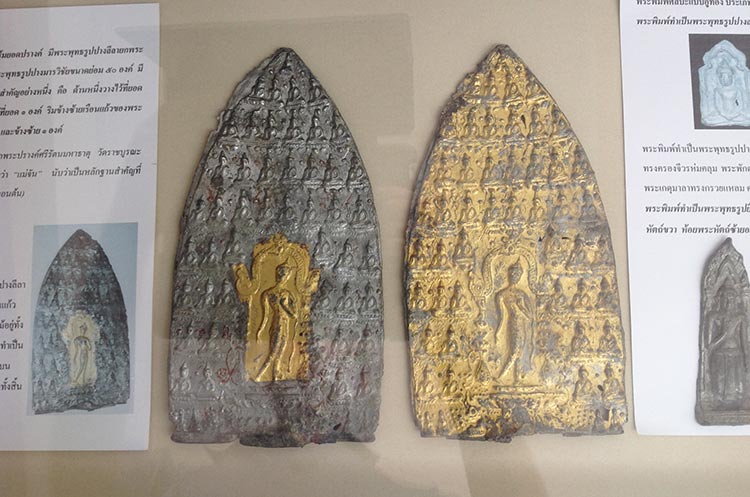 ยอดปรางค์ มีพระพุทธรูปปางลีลายกพระ
พระพุทธรูปปางมารวิชัยขนาดย่อม ๕๐ องค์ มี
สำคัญอย่างหนึ่ง คือ ด้านหนึ่งวางไว้ที่ยอด
ที่ยอด ๑ องค์ ริมข้างซ้ายเรือนแก้วของพระ
และข้างซ้าย ๑ องค์
พระปรางค์ศรีรัตนมหาธาตุ วัดราชบูรณะ
ว่า "แม่จัน" นับว่าเป็นหลักฐานสำคัญที่
ตอนต้น)
ปางลีลา
แก้ว
อยู่ทั้ง
ทำเป็น
บน
ทั้งสิ้น
พระพิมพ์ทำเป็นพระพุทธรูปปาง
พระพิมพ์ทำเป็นพระพุทธรูปปาง
ทรงครองจีวรห่มคลุม พระพักตร์
พระเกตุมาลาทรงกรวยแหลม
พระพิมพ์ทำเป็นพระพุทธรูป
หัตถ์ขวา ห้อยพระหัตถ์ซ้าย